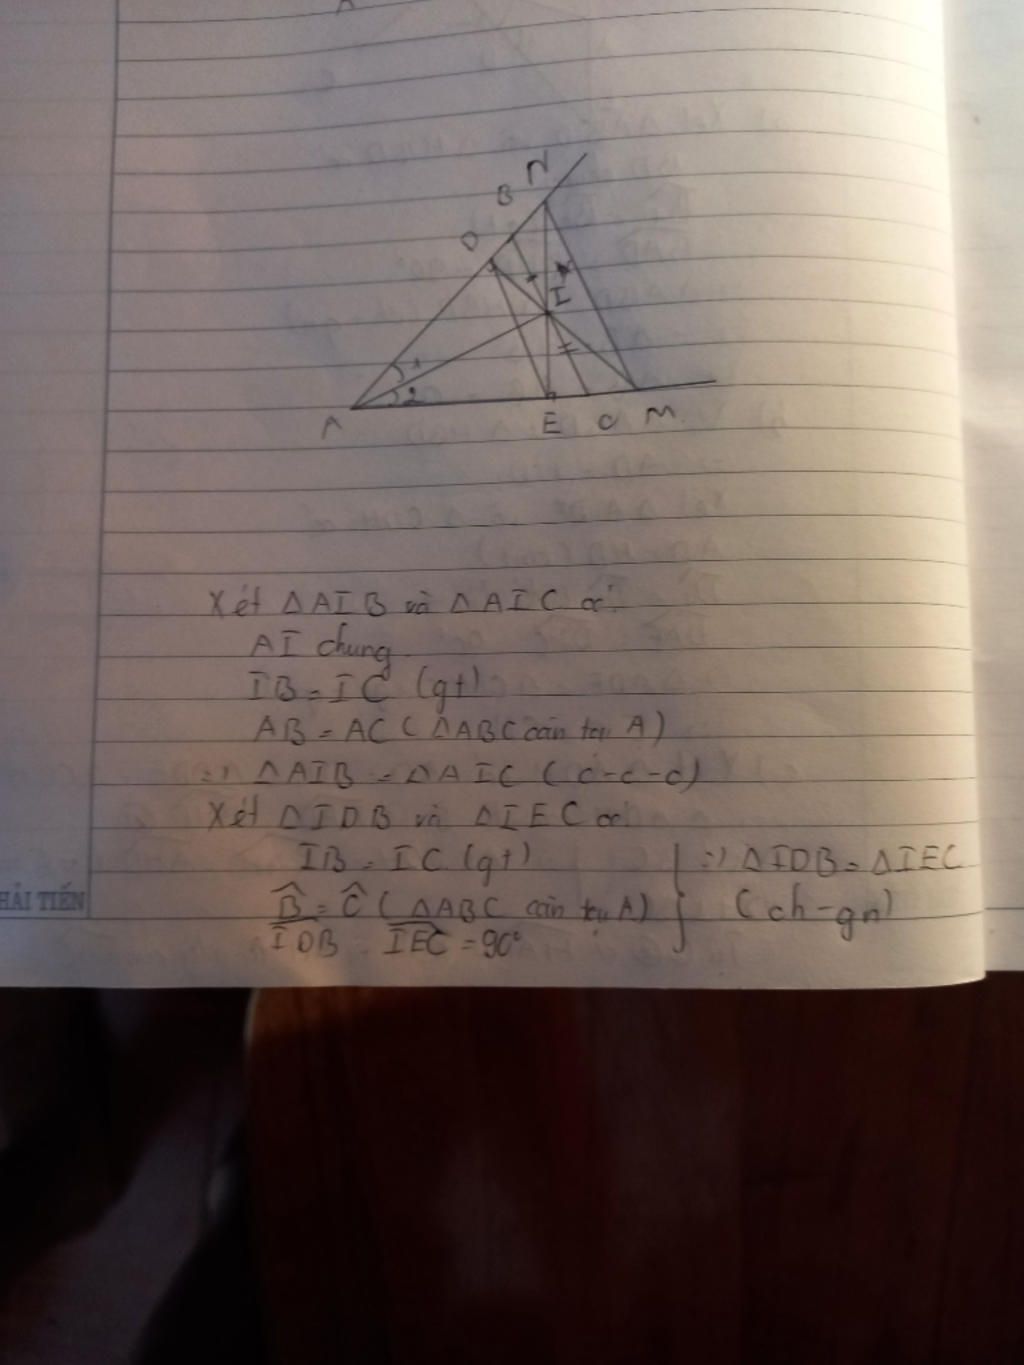 N
B
D
I
1
2
A
E C M
Xét ΔAIB và ΔAIC có
AI chung
IB = IC (gt)
AB = AC (ΔABC cân tại A)
=> ΔAIB = ΔAIC (c-c-c)
Xét ΔIDB và ΔIEC có
IB = IC (gt) => ΔIDB = ΔIEC
B̂ = Ĉ (ΔABC cân tại A) (ch-gn)
IDB = IEC = 90°
HẢI TIẾN